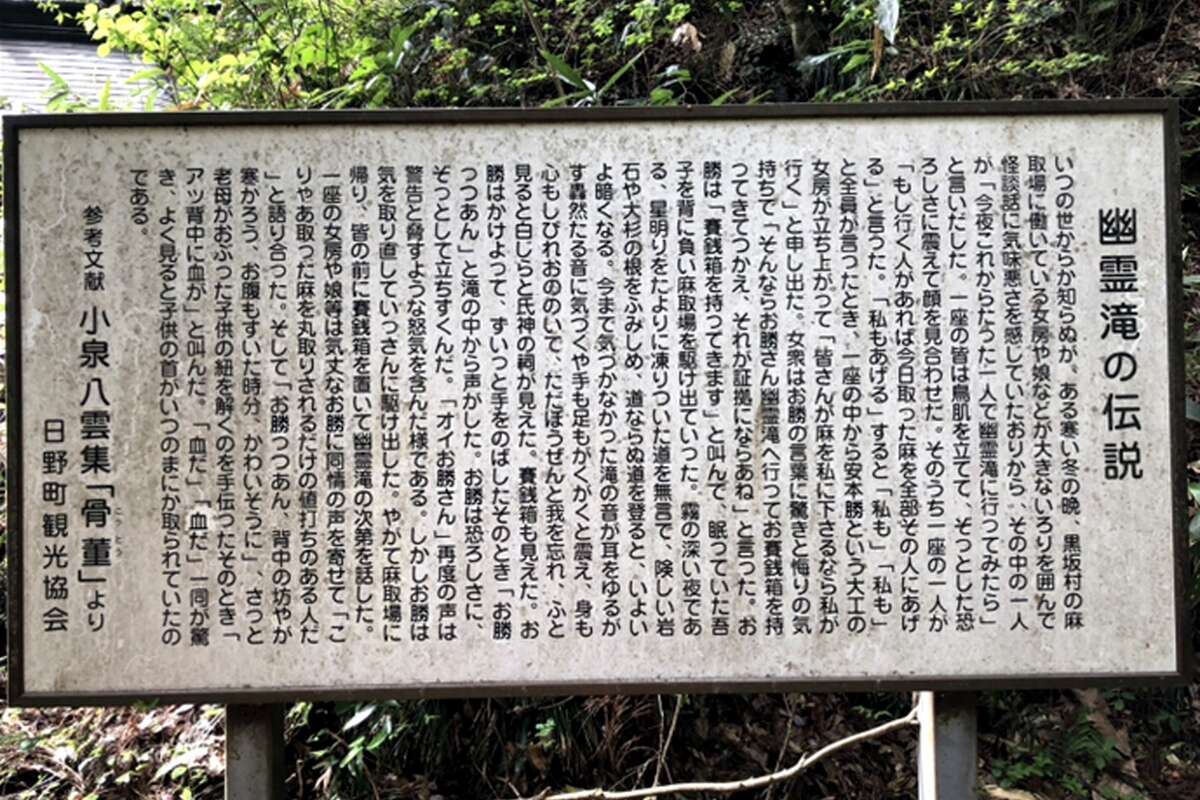 幽霊滝の伝説
いつの世からか知らぬが、ある寒い冬の晩、黒坂村の麻
取場に働いている女房や娘などが大きないろりを囲んで
怪談話に気味悪さを感じていたおりから、その中の一人
が「今夜これからたった一人で幽霊滝に行ってみたら」
と言いだした。一座の皆は鳥肌を立てて、ぞっとした恐
ろしさに震えて顔を見合わせた。そのうち一座の一人が
「もし行く人があれば今日取った麻を全部その人にあげ
る」と言った。「私もあげる」すると「私も」「私も」
と全員が言ったとき、一座の中から安本勝という大工の
女房が立ち上がって「皆さんが麻を私に下さるなら私が
行く」と申し出た。女衆はお勝の言葉に驚きと侮りの気
持ちで「そんならお勝さん幽霊滝へ行ってお賽銭箱を持
ってきてつかえ、それが証拠にならあね」と言った。お
勝は「賽銭箱を持ってきます」と叫んで、眠っていた吾
子を背に負い麻取場を駆け出ていった。霧の深い夜であ
る、星明りをたよりに凍りついた道を無言で、険しい岩
石や大杉の根をふみしめ、道ならぬ道を登ると、いよい
よ暗くなる。今まで気づかなかった滝の音が耳をゆるが
す轟然たる音に気づくや手も足もがくがくと震え、身も
心もしびれおののいて、ただぼうぜんと我を忘れ、ふと
見ると白じらと氏神の祠が見えた。賽銭箱も見えた。お
勝はかけよって、ずいっと手をのばしたそのとき「お勝
っつあん」と滝の中から声がした。お勝は恐ろしさに、
ぞっとして立ちすくんだ。「オイお勝さん」再度の声は
警告と脅すような怒気を含んだ様である。しかしお勝は
気を取り直していっさんに駆け出した。やがて麻取場に
帰り、皆の前に賽銭箱を置いて幽霊滝の次第を話した。
一座の女房や娘等は気丈なお勝に同情の声を寄せて「こ
りゃあ取った麻を丸取りされるだけの値打ちのある人だ
」と語り合った。そして「お勝っつあん、背中の坊やが
寒かろう、お腹もすいた時分、かわいそうに」、さっと
老母がおぶった子供の紐を解くのを手伝ったそのとき「
アッ背中に血が」と叫んだ。「血だ」「血だ」一同が驚
き、よく見ると子供の首がいつのまにか取られていたの
である。
参考文献 小泉八雲集「骨董」より
こっとう
日野町観光協会